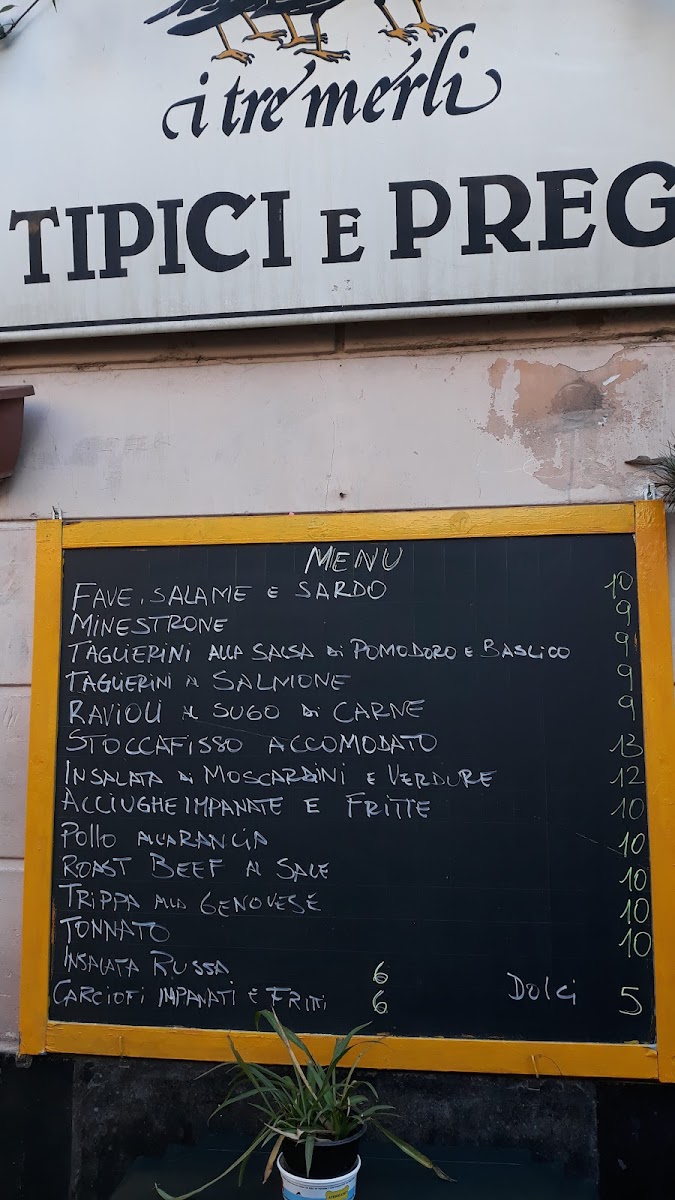 i tre merli
TIPICI E PREG
MENU
FAVE, SALAME E SARDO 10
MINESTRONE 9
TAGLIERINI ALLA SALSA di POMODORO E BASLICO 9
TAGLIERINI AL SALMONE 9
RAVIOLI AL SUGO di CARNE 9
STOCCAFISSO ACCOMODATO 13
INSALATA di MOSCARDINI E VERDURE 12
ACCIUGHE IMPANATE E FRITTE 10
POLLO ALL'ARANCIA 10
ROAST BEEF AL SALE 10
TRIPPA ALLA GENOVESE 10
TONNATO 10
INSALATA RUSSA 6
CARCIOFI IMPANATI E FRITTI 6 Dolci 5